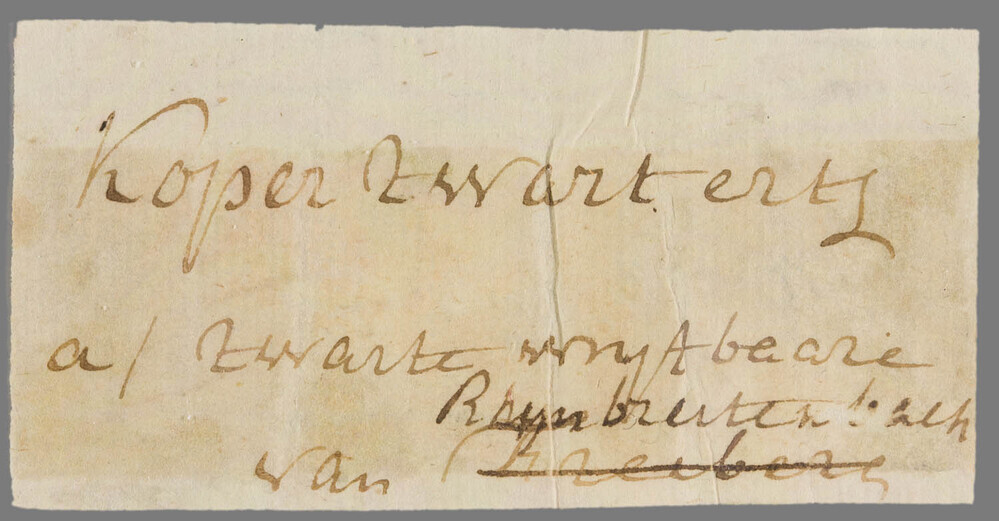 Koper zwart ertz
a/ zwarte wryfbaare
Rhynbreitenbach
van Freiberg